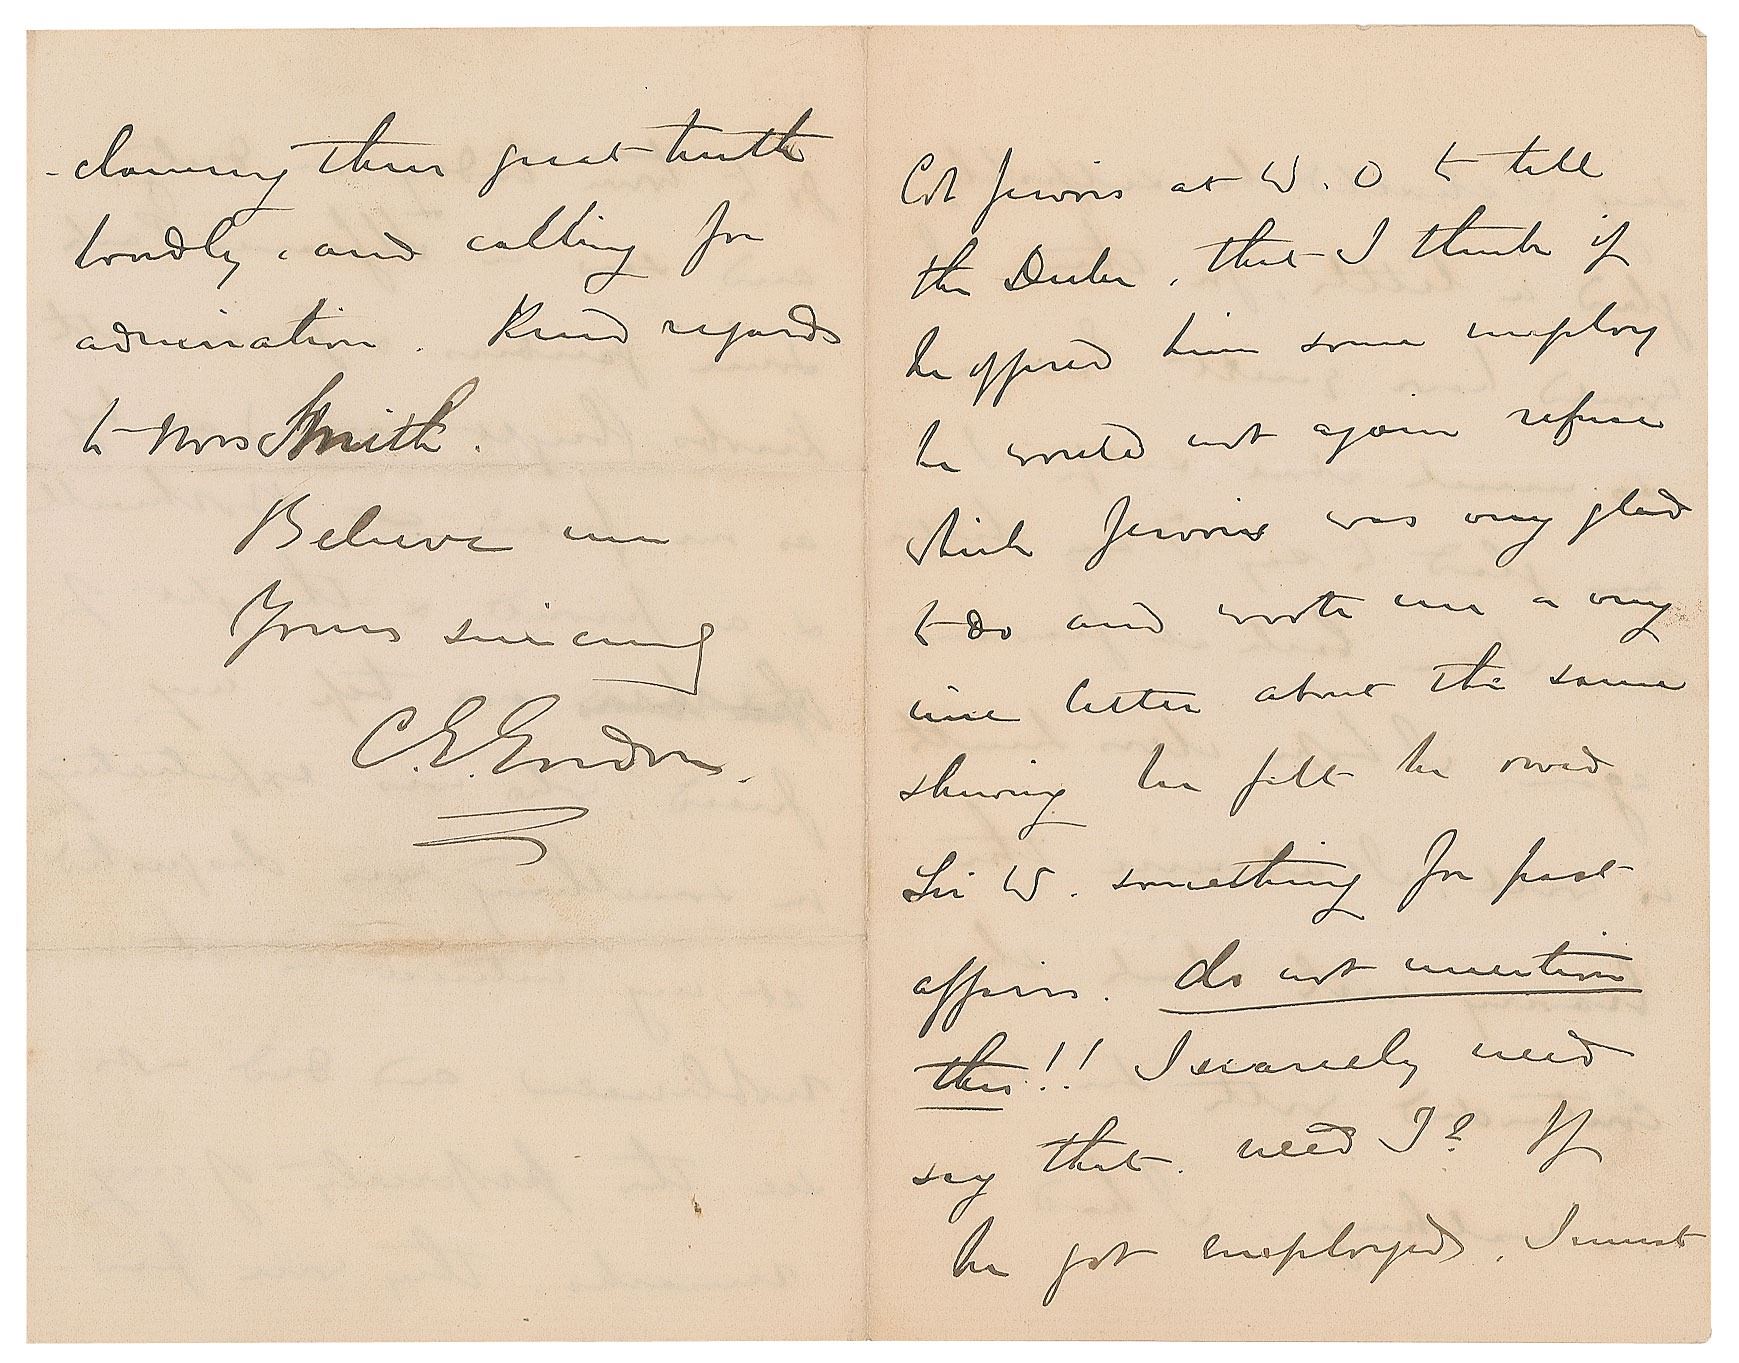 -claiming their great truth
loudly, and calling for
admiration. Kind regards
to Mrs Smith.
Believe me
Yours sincerely
C. G. Gordon.
Col Jervois at W. O to tell
the Duke, that I think if
he offered him some employ
he would not again refuse
which Jervois was very glad
to do and wrote me a very
nice letter about the same
shewing he felt he owed
Sir W. something for past
affairs. do not mention
this!! I scarcely need
say that. need I? If
he got employed, I must